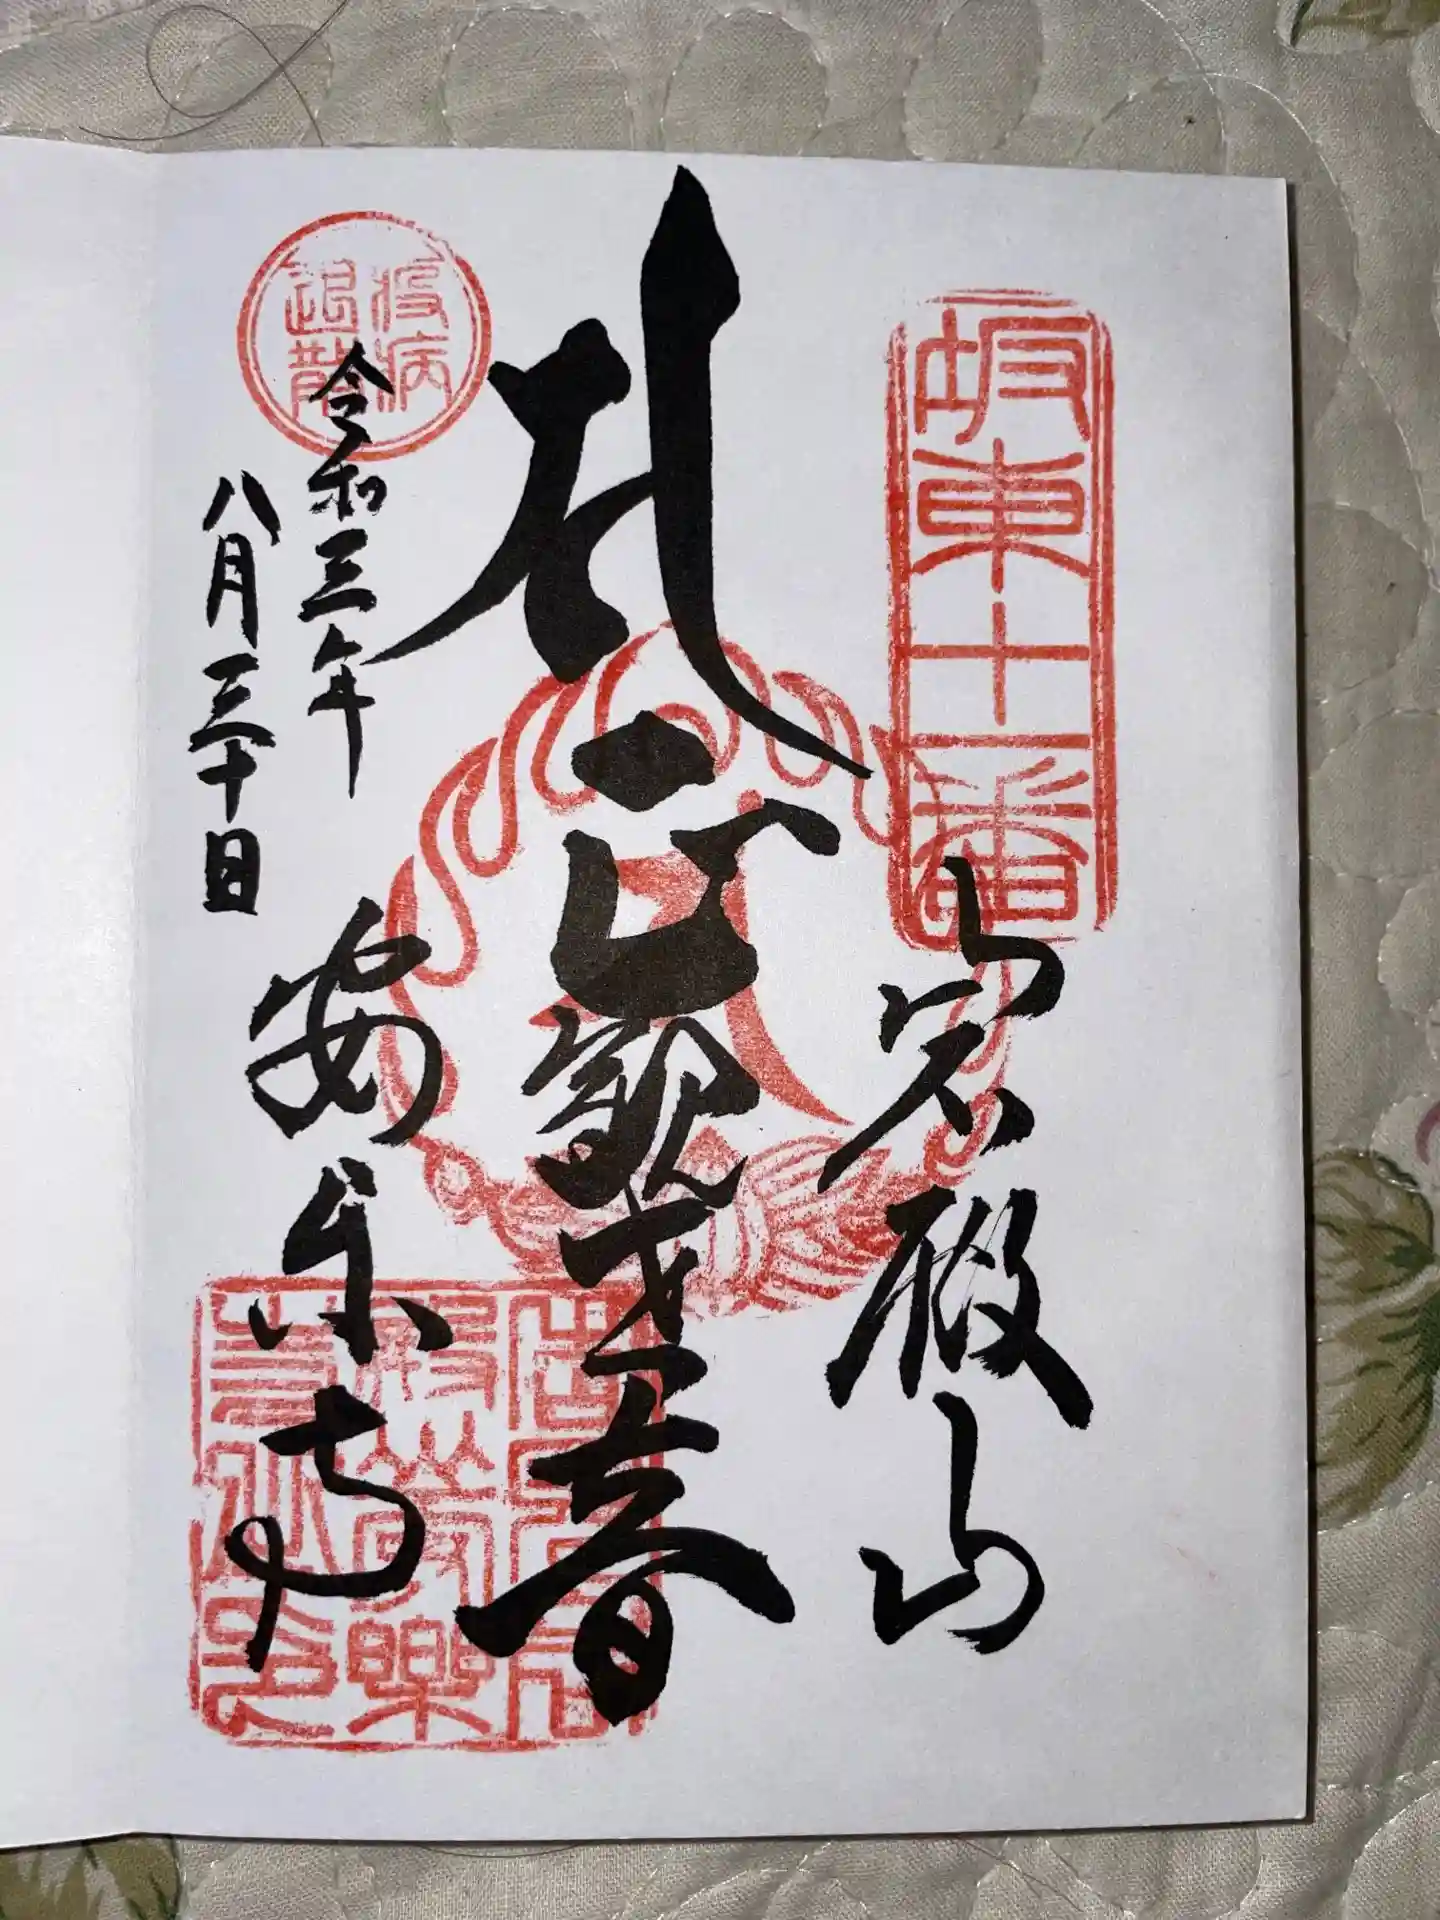 坂東十一番
岩殿山
正観世音
疫病退散
令和三年
八月三十日
安楽寺